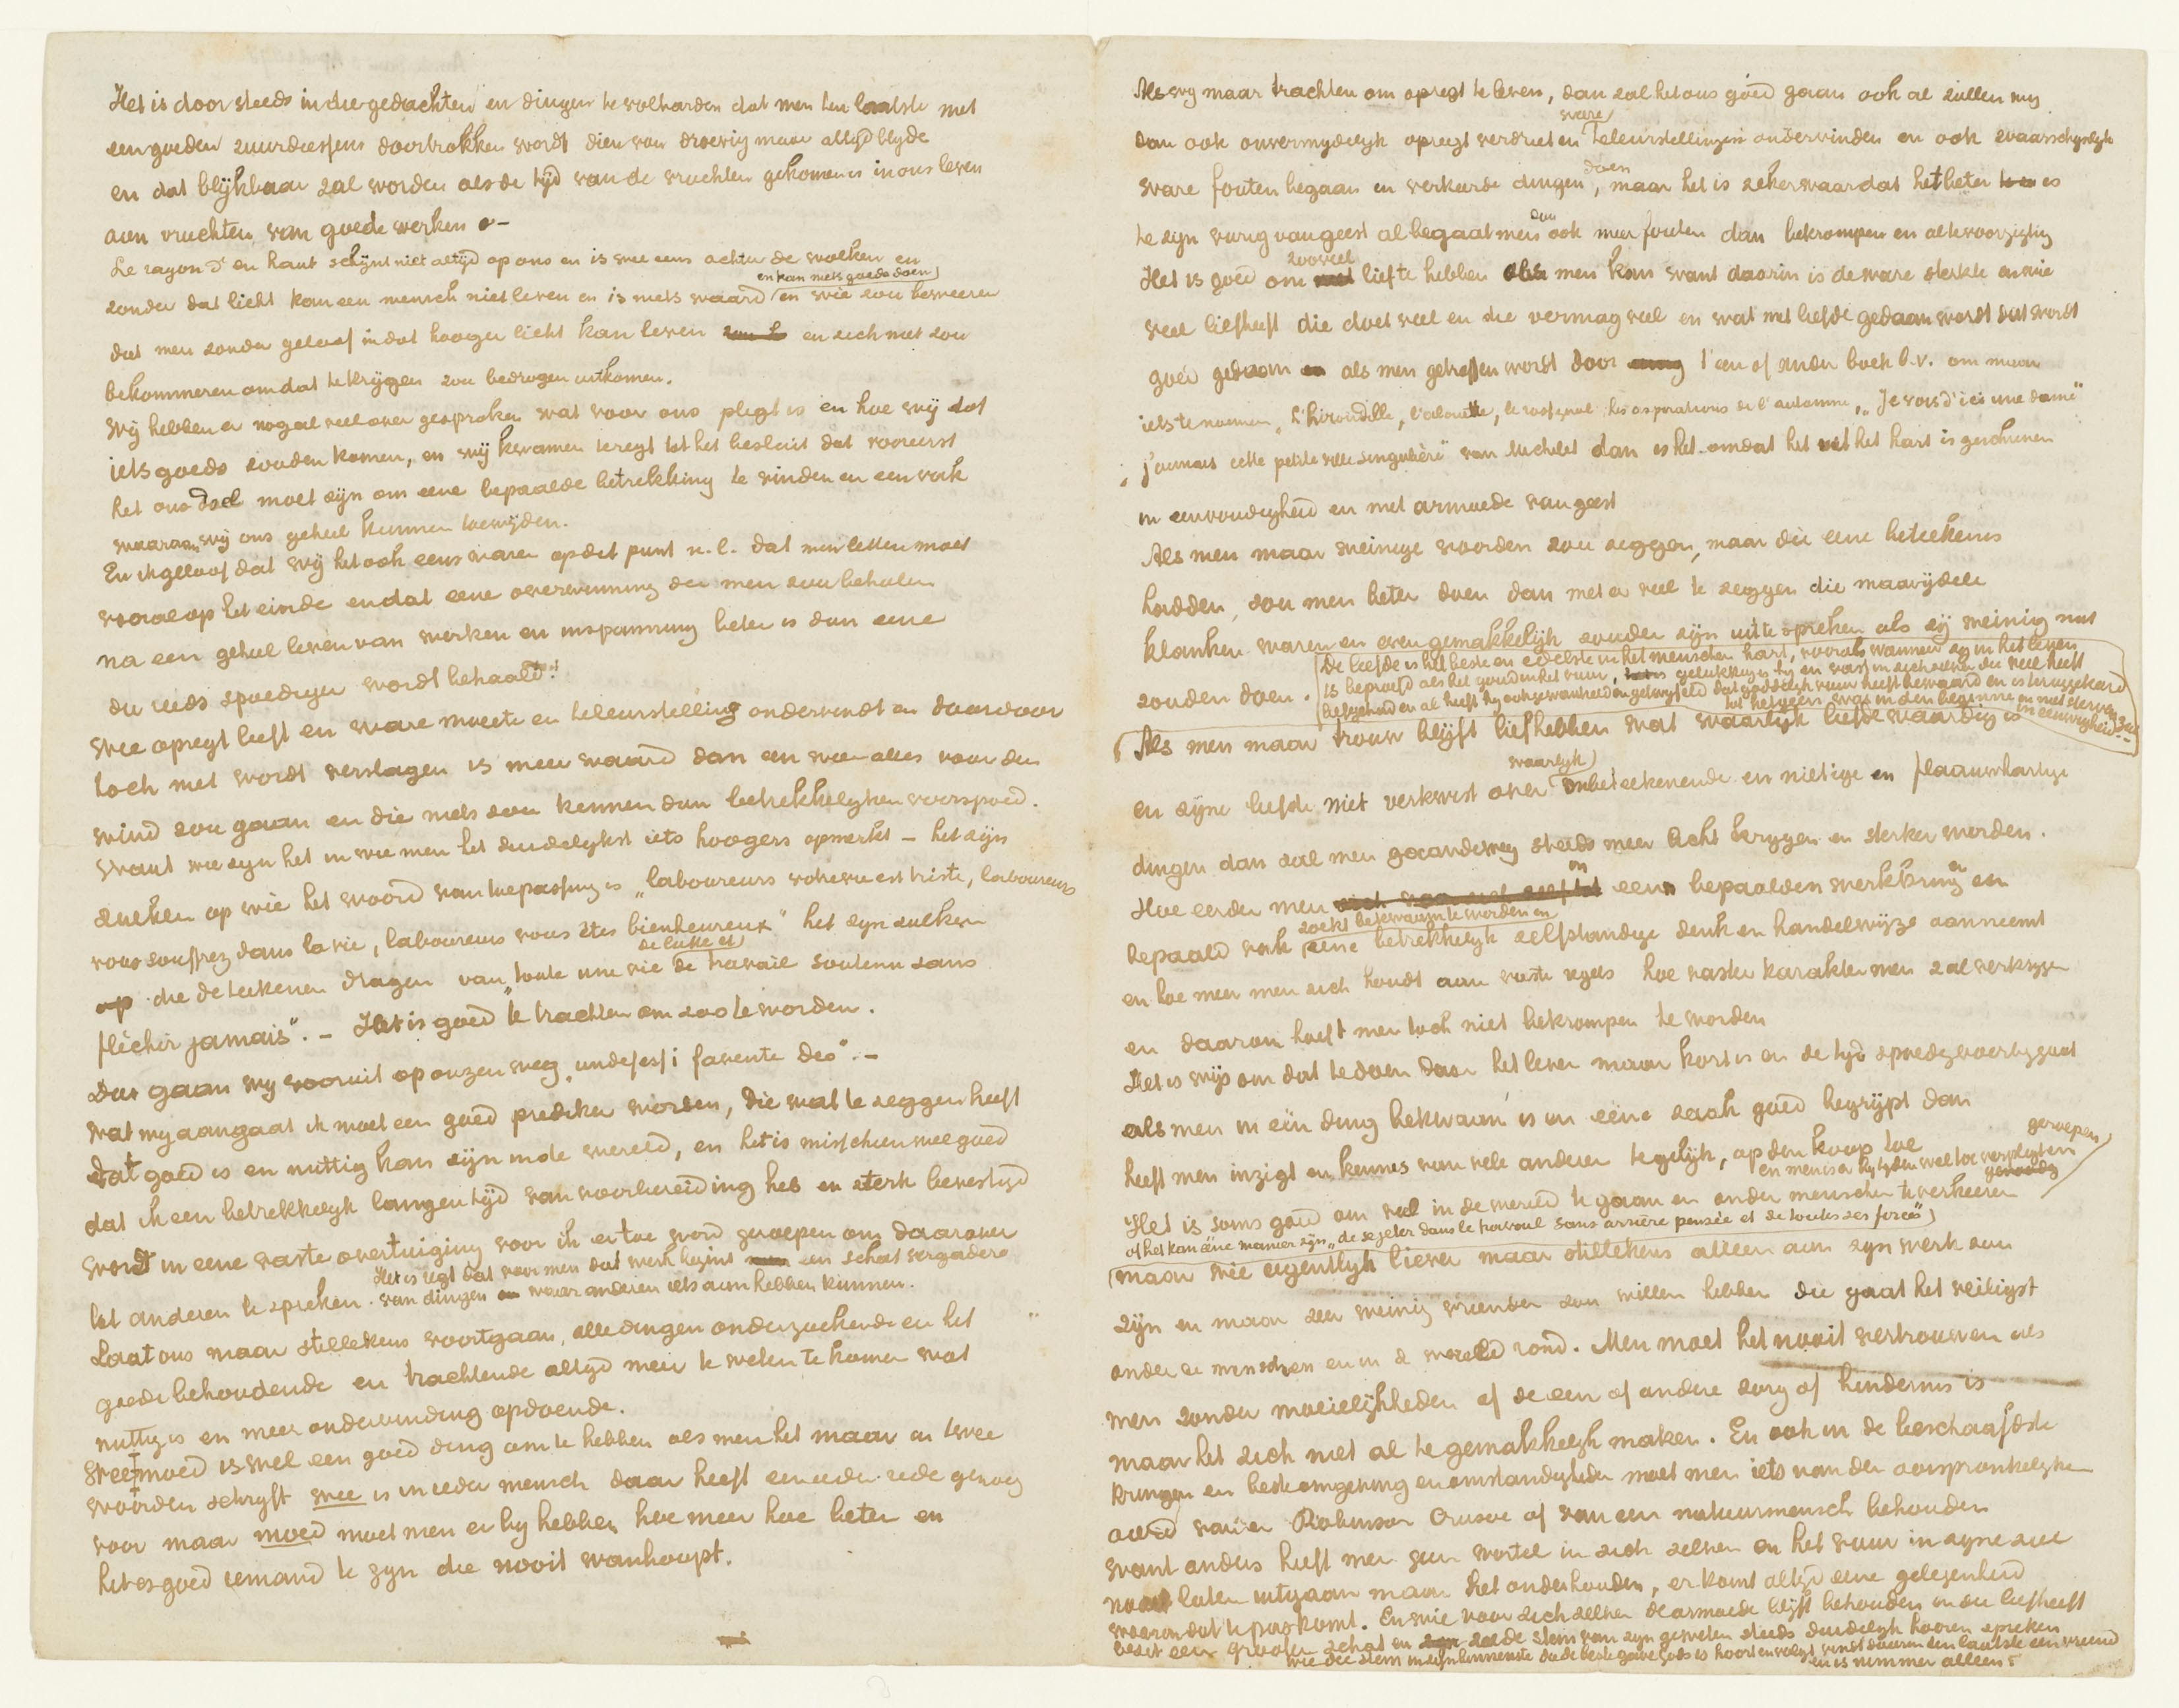 Het is door steeds in die gedachten en dingen te volharden dat men ten laatste met
een goeden zuurdeessem doortrokken wordt dien van droevig maar altijd blijde
en dat blijkbaar zal worden als de tijd van de vruchten gekomen is in ons leven
aan vruchten van goede werken
Le rayon d'en haut schijnt niet altijd op ons en is wel eens achter de wolken en
en kan niets goeds doen
zonder dat licht kan een mensch niet leven en is niets waard en wie zou beweeren
dat men zonder geloof in dat hooger licht kan leven en zich niet zou
bekommeren om dat te krijgen zou bedrogen uitkomen.
Wij hebben er nogal veel over gesproken wat voor ons pligt is en hoe wij tot
iets goeds zouden komen, en wij kwamen teregt tot het besluit dat vooreerst
het ons doel moet zijn om eene bepaalde betrekking te vinden en een vak
waaraan wij ons geheel kunnen toewijden.
En ik geloof dat wij het ook eens waren op dit punt n.l. dat men letten moet
vooral op het einde en dat eene overwinning die men zou behalen
na een geheel leven van werken en inspanning beter is dan eene
die reeds spoediger wordt behaald!
Wie opregt leeft en ware moeite en teleurstelling ondervindt en daardoor
toch niet wordt verslagen is meer waard dan een wien alles voor den
wind zou gaan en die niets zou kennen dan betrekkelijken voorspoed.
Want wie zijn het in wie men het duidelijkst iets hoogers opmerkt – het zijn
zulken op wie het woord van toepassing is „laboureurs votre vie est triste, laboureurs
vous souffrez dans la vie, laboureurs vous êtes bienheureux" het zijn zulken
de lutte et
op die de teekenen dragen van „toute une vie de travail soutenu sans
fléchir jamais". – Het is goed te trachten om zoo te worden.
Dus gaan wij vooruit op onzen weg „indefessi favente Deo". –
wat mij aangaat ik moet een goed prediker worden, die wat te zeggen heeft
dat goed is en nuttig kan zijn in de wereld, en het is misschien wel goed
dat ik een betrekkelijk langen tijd van voorbereiding heb en sterk bevestigd
word in eene vaste overtuiging voor ik er toe word geroepen om daarover
Het is regt dat voor men dat werk begint een schat vergadere
tot anderen te spreken. van dingen waar anderen iets aan hebben kunnen.
Laat ons maar stillekens voortgaan, alle dingen onderzoekende en het
goede behoudende en trachtende altijd meer te weten te komen wat
nuttig is en meer ondervinding opdoende.
Weemoed is wel een goed ding om te hebben als men het maar in twee
woorden schrijft wee is in ieder mensch daar heeft een ieder rede genoeg
voor maar moed moet men er bij hebben hoe meer hoe beter en
het is goed iemand te zijn die nooit wanhoopt.
Als wij maar trachten om opregt te leven, dan zal het ons goed gaan ook al zullen wij
ware
dan ook onvermijdelijk opregt verdriet en teleurstellingen ondervinden en ook waarschijnlijk
doen
ware fouten begaan en verkeerde dingen, maar het is zeker waar dat het beter is
dan
te zijn vurig van geest al begaat men ook meer fouten dan bekrompen en al te voorzigtig
zooveel
Het is goed om lief te hebben als men kan want daarin is de ware sterkte en wie
veel liefheeft die doet veel en die vermag veel en wat met liefde gedaan wordt dat wordt
goed gedaan als men getroffen wordt door 't een of ander boek b.v. om maar
iets te noemen „l'hirondelle, l'alouette, le rossignol les aspirations de l'automne, „Je vois d'ici une dame"
„j'aimais cette petite ville singulière" van Michelet dan is het omdat het uit het hart is geschreven
in eenvoudigheid en met armoede van geest
Als men maar weinige woorden zou zeggen, maar die eene beteekenis
hadden, zou men beter doen dan met er veel te zeggen die maar ijdele
klanken waren en even gemakkelijk zouden zijn uit te spreken als zij weinig nut
De liefde is het beste en edelste in het menschen hart, vooral wanneer zij in het leven
is beproefd als het goud in het vuur, gelukkig is hij en vast in zich zelven die veel heeft
zouden doen. liefgehad en al heeft hij ook gewankeld en getwijfeld dat goddelijk vuur heeft bewaard en is teruggekeerd
tot hetgeen was in den beginne en niet sterven zal
Als men maar trouw blijft liefhebben wat waarlijk liefdewaardig is in eeuwigheid.
waarlijk
en zijne liefde niet verkwist over onbeteekenende en nietige en flaauwhartige
dingen dan zal men gaandeweg steeds meer licht krijgen en sterker worden.
in en
Hoe eerder men een bepaalden werkkring en
zoekt bekwaam te worden en
bepaald vak eene betrekkelijk zelfstandige denk en handelwijze aanneemt
en hoe meer men zich houdt aan vaste regels hoe vaster karakter men zal verkrijgen
en daarom hoeft men toch niet bekrompen te worden
Het is wijs om dat te doen daar het leven maar kort is en de tijd spoedig voorbijgaat
als men in één ding bekwaam is en ééne zaak goed begrijpt dan
heeft men inzigt en kennis van vele andere tegelijk, op den koop toe
geroepen
en men is er bij tijden wel toe verpligt en genoodigd
Het is soms goed om veel in de wereld te gaan en onder menschen te verkeeren
of het kan ééne manier zijn „de se jeter dans le travail sans arrière pensée et de toutes ses forces"
maar wie eigentlijk liever maar stillekens alleen aan zijn werk zou
zijn en maar zeer weinig vrienden zou willen hebben die gaat het veiligst
onder de menschen en in de wereld rond. Men moet het nooit vertrouwen als
men zonder moeielijkheden of de een of andere zorg of hindernis is
maar het zich niet al te gemakkelijk maken. En ook in de beschaafdste
kringen en beste omgeving en omstandigheden moet men iets van den oorspronkelijken
aard van een Robinson Crusoe of van een natuurmensch behouden
want anders heeft men geen wortel in zich zelven en het vuur in zijne ziel
nooit laten uitgaan maar het onderhouden, er komt altijd eene gelegenheid
waarin dat te pas komt. En wie voor zich zelven de armoede blijft behouden en die liefheeft
bezit een grooten schat en zal de stem van zijn geweten steeds duidelijk hooren spreken
wie die stem in zijn binnenste die de beste gave Gods is hoort en volgt vindt daarin ten laatste een vriend
en is nimmer alleen.